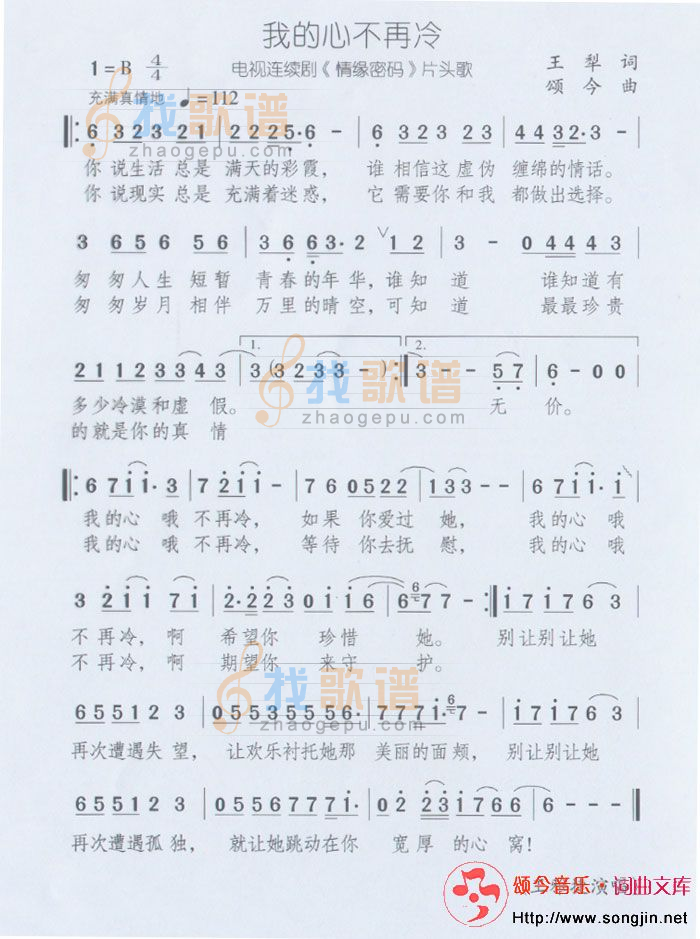 我的心不再冷
1=B 4/4
电视连续剧《情缘密码》片头歌
王犁 词
颂今 曲
充满真情地 ♩=112
找歌谱
zhaogepu.com
6 323 21 | 2225·6 - | 6 323 23 | 4432·3 - |
你 说生活 总是 满天的彩霞， 谁 相信这 虚伪 缠绵的情话。
你 说现实 总是 充满着迷惑， 它 需要你 和我 都做出选择。
3 656 56 | 3663· ∨12 | 3 - 04443 |
匆 匆人生 短暂 青春的年华，谁知 道 谁知道有
匆 匆岁月 相伴 万里的晴空，可知 道 最最珍贵
21123343 | 1. 3 (3233 -) :| 2. 3 - - 57 | 6 - 00 |
多少冷漠和虚 假。 无 价。
的就是你的真 情
找歌谱
zhaogepu.com
67ii·3 | 72ii - | 760522 | 133 - - | 67ii·i |
我的心 哦 不再冷， 如果 你爱过 她， 我的心 哦
我的心 哦 不再冷， 等待 你去抚 慰， 我的心 哦
3 2ii 7i | 2·223 0ii6 | 677 - :| i7i763 |
不再冷，啊 希望你 珍惜 她。 别让别让她
不再冷，啊 期望你 来守 护。
找歌谱
zhaogepu.com
6551 2 3 | 05535556· | 7771·7 - | i7i763 |
再次遭遇失 望， 让欢乐衬托她那 美丽的面颊， 别让别让她
6551 2 3 | 0556777i· | 02 23i766 | 6 - - - |
再次遭遇孤 独， 就让她跳动在你 宽 厚 的心 窝！
颂今音乐·词曲文库
Http://www.songjin.net